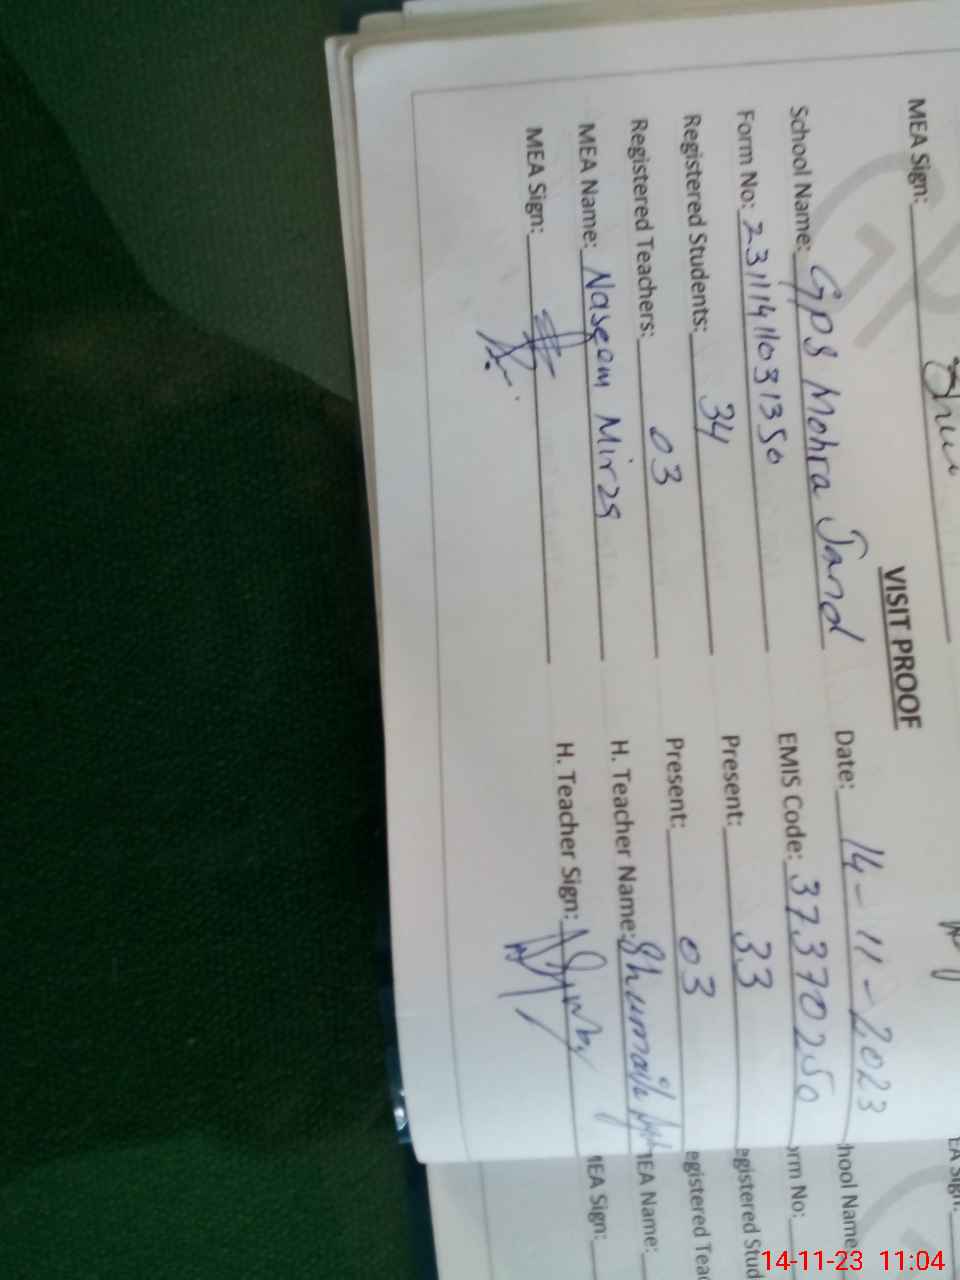 MEA Sign:
VISIT PROOF
School Name: GPS Mohra Jand Date: 14-11-2023
Form No: 23111411031350 EMIS Code: 37370250
Registered Students: 34 Present: 33
Registered Teachers: 03 Present: 03
MEA Name: Naseem Mirza H. Teacher Name: Shumaila
MEA Sign: H. Teacher Sign:
EA Sign:
hool Name
orm No:
egistered Stud
egistered Teac
MEA Name:
MEA Sign:
14-11-23 11:04